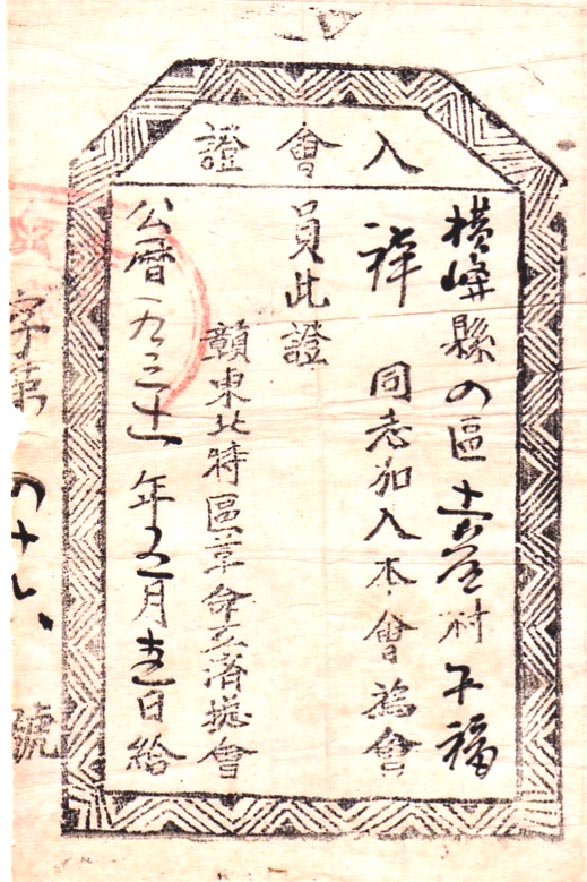 入會證
橫峰縣四區 村 福
祥 同志加入本會為會
員此證
贛東北特區革命互濟總會
公曆一九三 年 月 日給
字第四十八號